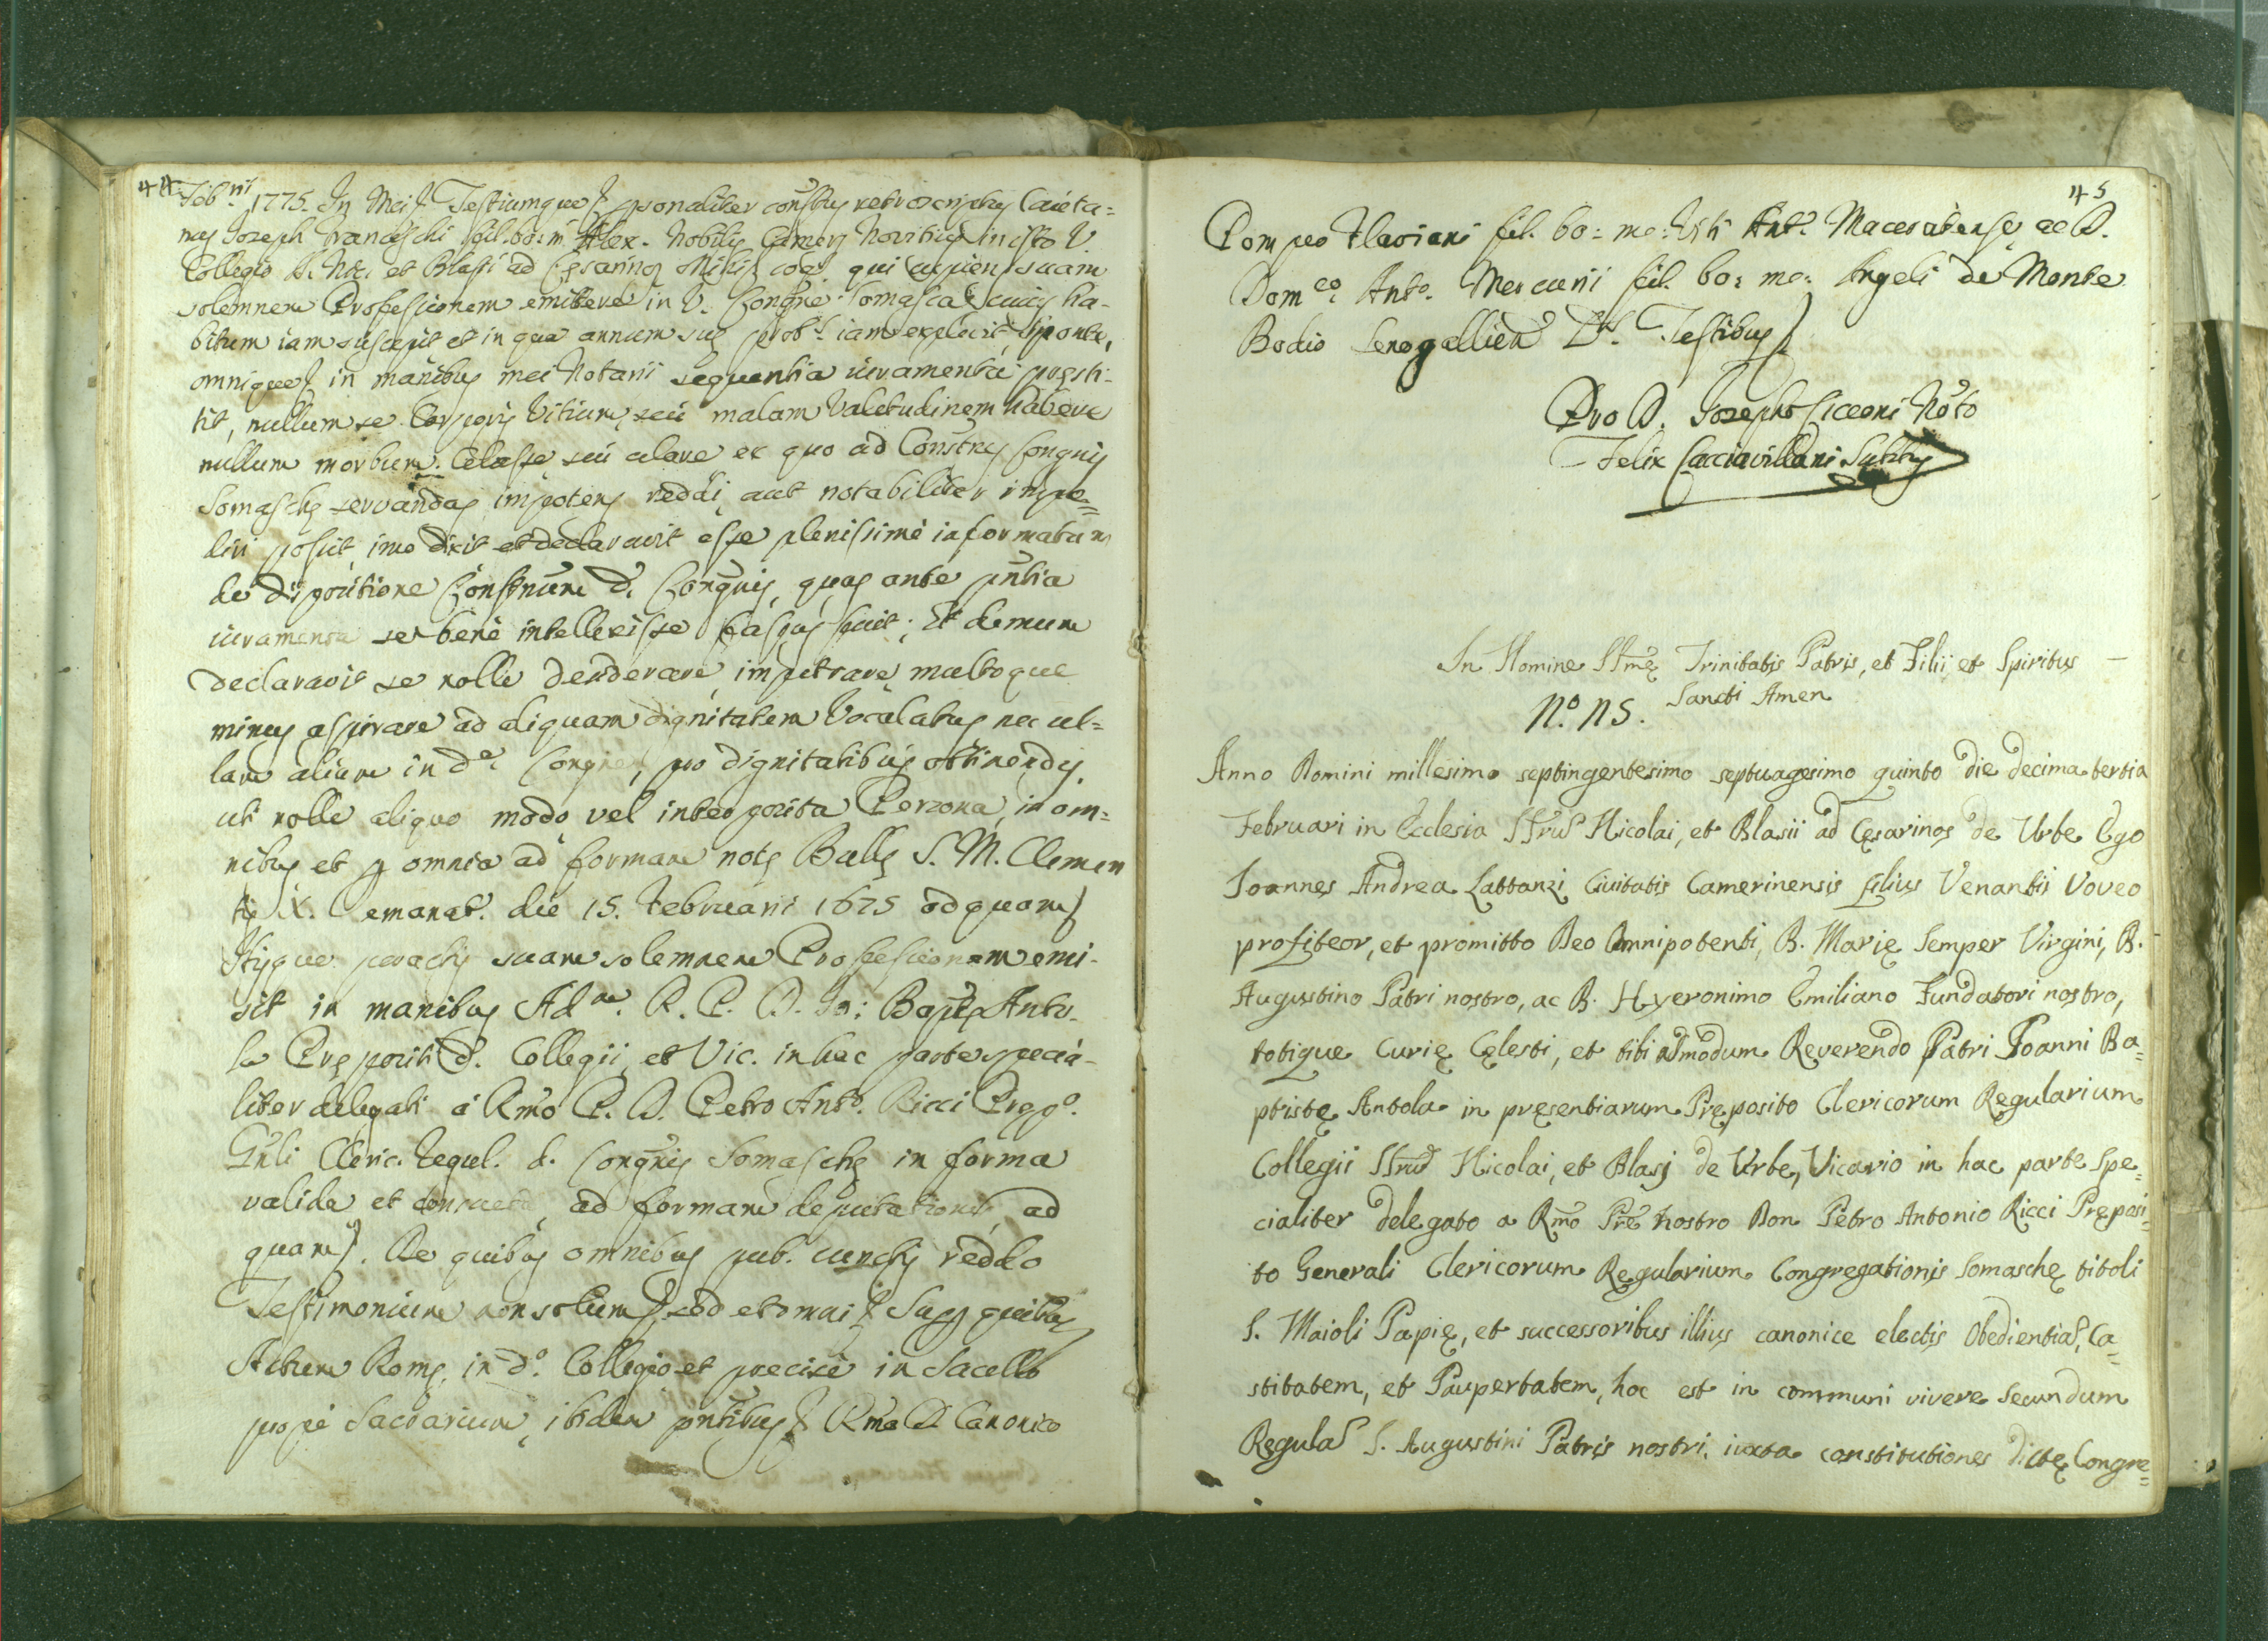 44
Febrii 1775. In Mei Testiumque personaliter constitus retroscriptus Caieta=
nus Joseph Franceschi fil. bo: m: Alex. Nobilis Camers Novitius in isto V.
Collegio S. Nic. et Blasi ad Cesarinos mihi cog. qui cupiens suam
solemnem Professionem emittere in V. Congne Somasca cuius ha-
bitum iam suscepit et in qua annum sue prob. iam explevit, sponte,
omnique in manibus mei Notarii sequentia iuramenta presti-
tit, nullum se Corporis Vitium, seu malam Valetudinem habere
nullum morbum Celasse seu celare ex quo ad Constnes Congnis
Somasche servandas impotens reddi, aut notabiliter impe=
diri possit, imo dixit et declaravit esse plenissime informatum
de dispositione Constnum d. Congnis, quas ante pntia
iuramenta se bene intellexisse fassus fuit; Et demum
declaravit se nolle desiderare, impetrare, multoque
minus aspirare ad aliquam dignitatem Vocalatus nec ul=
lam aliam in da. Congne, pro dignitatibus obtinendis,
uti nolle aliquo modo vel interposita Persona, in om=
nibus et p omnia ad formam note Bulle S. M. Clemen
tis X. emanat. die 15. Februarii 1675 ad quam
Ijsque peractis suam solemnem Professionem emi-
sit in manibus Adm. R. P. D. Jo: Bapte Anto-
la Prepositi d. Collegii, et Vic. in hac parte specia-
liter delegati a Rmo P. D. Petro Anto. Ricci Prepo.
Gnli Cleric. Regul. d. Congnis Somasche in forma
valida et consueta, ad formam deputationis, ad
quam. De quibus omnibus pub. cunctis reddo
Testimonium non solum, sed et omni Sup quibus
Actum Rome in do. Collegio et precise in Sacello
prope Sacrarium, ibidem pntibus Rmo D. Canonico
45
Pompeo Flaviani fil. bo: me: Anto. Maceratense, ac D.
Domco. Anto. Mercurii fil. bo: me: Angeli de Monte
Bodio Senogallien Testibus
Pro D. Josepho Cicconi Noto
Felix Cacciavillani Subtus
In Nomine SSme Trinitatis Patris, et Filii et Spiritus —
Sancti Amen
N.o 115.
Anno Domini millesimo septingentesimo septuagesimo quinto die decima tertia
Februari in Ecclesia SSrum Nicolai, et Blasii ad Cesarinos de Urbe Ego
Joannes Andrea Lattanzi Civitatis Camerinensis filius Venantii Voveo
profiteor, et promitto Deo Omnipotenti, B. Marie Semper Virgini, B.
Augustino Patri nostro, ac B. Hyeronimo Emiliano Fundatori nostro,
totique Curie Celesti, et tibi admodum Reverendo Patri Joanni Ba=
ptiste Antola in presentiarum Preposito Clericorum Regularium
Collegii SSrum Nicolai, et Blasj de Urbe, Vicario in hac parte spe=
cialiter delegato a Rmo Pre nostro Don Petro Antonio Ricci Preposi=
to Generali Clericorum Regularium Congregationis Somasche tituli
S. Maioli Papie, et successoribus illius canonice electis Obedientiam, Ca=
stitatem, et Paupertatem, hoc est in communi vivere Secundum
Regulam S. Augustini Patris nostri, iuxta constitutiones dicte Congre=